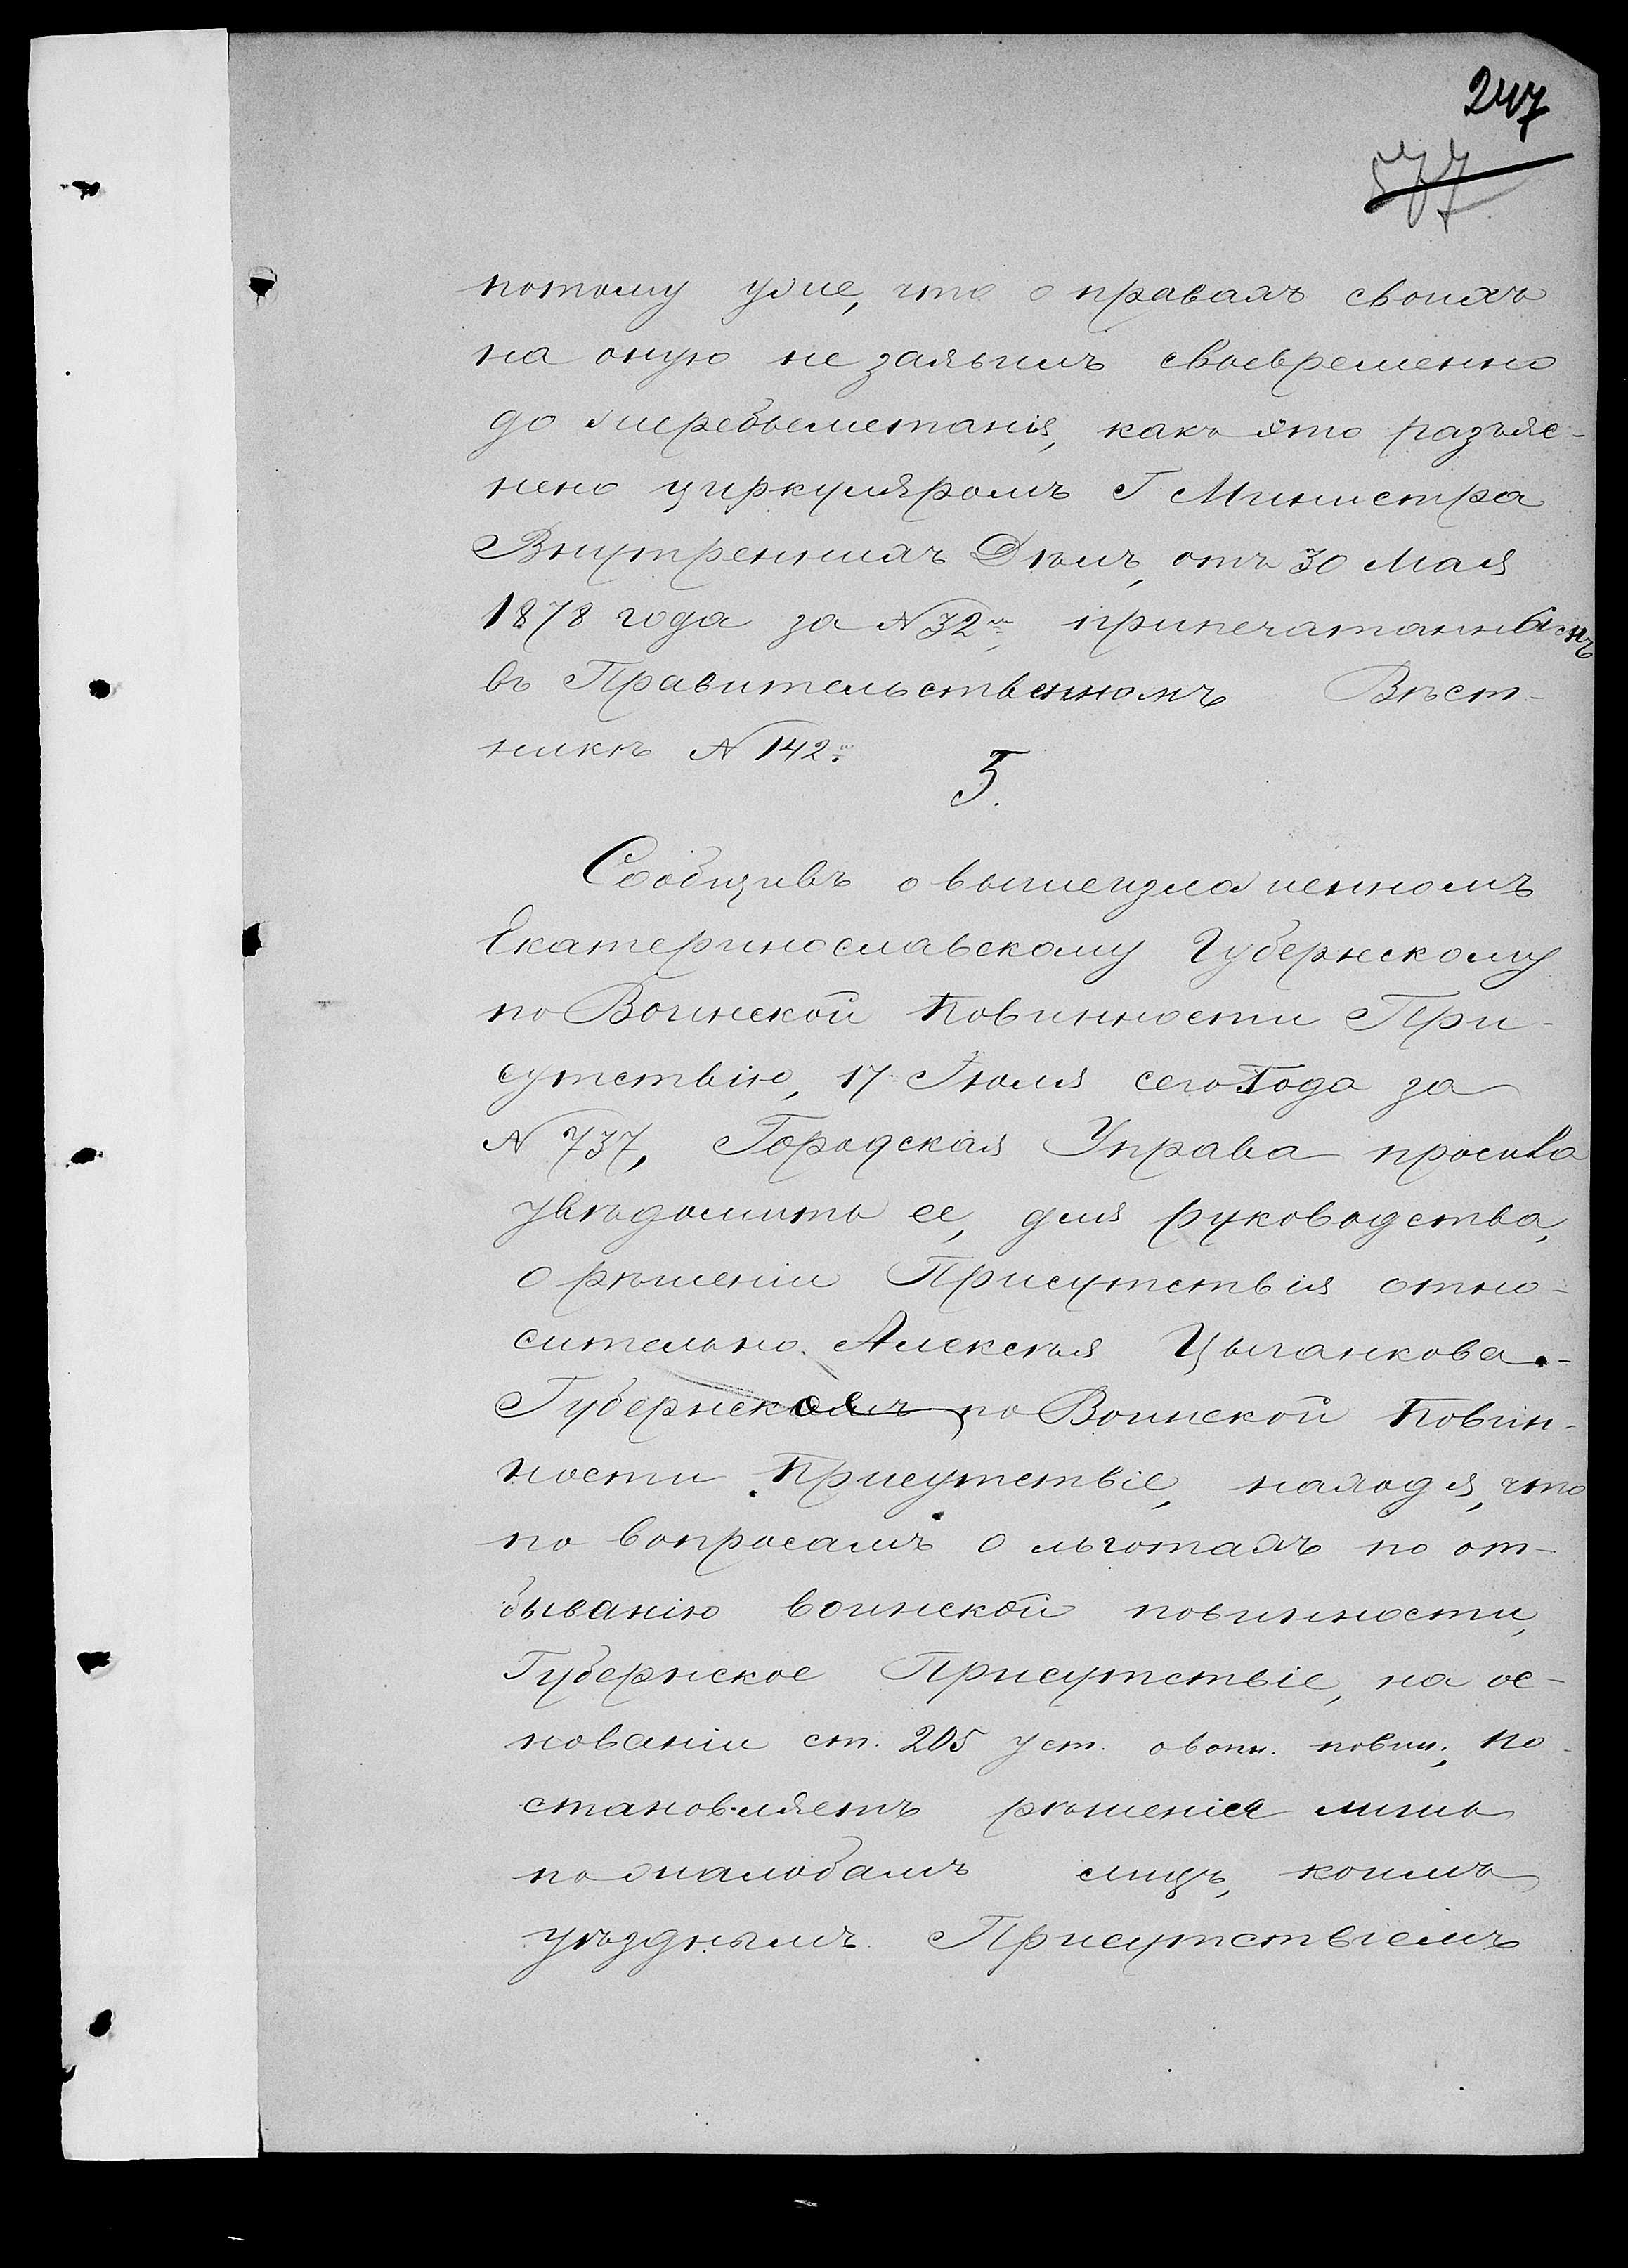 247
577
потому уже, что о правахъ своихъ
на оную не заявилъ своевременно
до жеребьеметанія, какъ это разъяс-
нено циркуляромъ Г Министра
Внутреннихъ Дѣлъ, отъ 30 Мая
1878 года за N 32м, припечатаннымъ
въ Правительственномъ Вѣст-
никѣ N 142м.
5.
Сообщивъ о вышеизложенномъ
Екатеринославскому Губернскому
по Воинской Повинности При-
сутствію, 17 Іюля сего Года за
N 737, Городская Управа просила
увѣдомить ее, для руководства,
о рѣшеніи Присутствія отно-
сительно Алексѣя Цыганкова.-
Губернское по Воинской Повин-
ности Присутствіе, находя, что
по вопросамъ о льготахъ по от-
быванію воинской повинности,
Губернское Присутствіе, на ос-
нованіи ст. 205 уст. о воин. повин., по-
становляетъ рѣшенія лишь
по жалобамъ лицъ, коимъ
уѣзднымъ Присутствіемъ